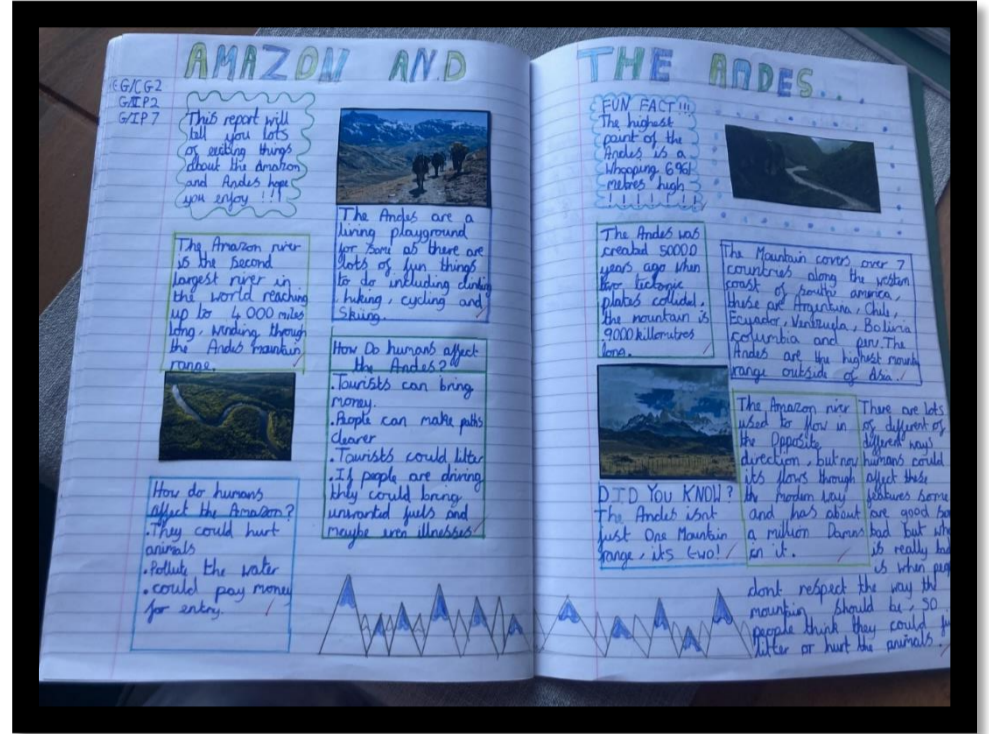 AMAZON AND THE ANDES....
G/CG2
G/IP2
G/IP7
This report will
tell you lots
of exciting things
about the Amazon
and Andes hope
you enjoy !!!
The Amazon river
is the second
largest river in
the world reaching
up to 4000 miles
long, winding through
the Andes mountain
range.
How do humans
affect the Amazon?
.They could hurt
animals
.Pollute the water
.could pay money
for entry.
The Andes are a
living playground
for some as there are
lots of fun things
to do including climbing
hiking, cycling and
Skiing.
How Do humans affect
the Andes?
.Tourists can bring
money.
.People can make paths
clearer
.Tourists could litter
.If people are driving
they could bring
unwanted fuels and
maybe even illnesses
FUN FACT!!!
The highest
point of the
Andes is a
whopping 6961
metres high
! ! ! ! ! ! !
The Andes was
created 50000
years ago when
two tectonic
plates collided.
the mountain is
9000 killometres
long.
DID YOU KNOW?
The Andes isnt
just One Mountain
range, its two!
The Mountain covers over 7
countries along the western
coast of south america,
these are Argentina, Chile,
Ecuador, Venezuela, Bolivia
columbia and peru. The
Andes are the highest mountain
range outside of Asia.
The Amazon river
used to flow in
the Opposite
direction, but now
its flows through
the modern way
and has about
a million Dams
in it.
There are lots
of different of
different ways
humans could
affect these
features some
are good
bad but
is really
is when
dont respect the way the
mountain should be, so
people think they could
litter or hurt the animals.